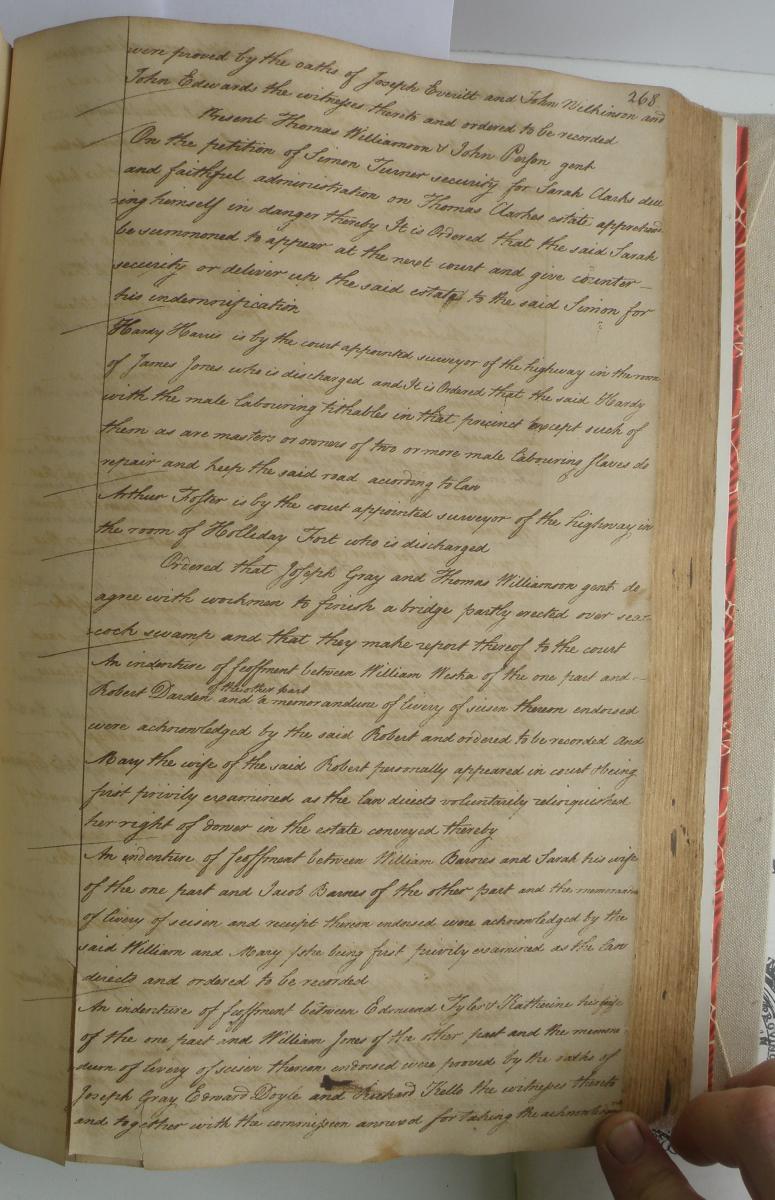 268
were proved by the oaths of Joseph Everitt and John Wilkinson and
John Edwards the witnesses thereto and ordered to be recorded
Present Thomas Williamson & John Person gent
On the petition of Simon Turner security for Sarah Clarks due
and faithful administration on Thomas Clarkes estate, apprehend
=ing himself in danger thereby It is Ordered that the said Sarah
be summoned to appear at the next court and give counter=
security or deliver up the said estate to the said Simon for
his indemnification
Hardy Harris is by the court appointed surveyor of the highway in the room
of James Jones who is discharged and It is Ordered that the said Hardy
with the male labouring tithables in that precinct except such of
them as are masters or owners of two or more male labouring slaves do
repair and keep the said road acording to law
Arthur Foster is by the court appointed surveyor of the highway in
the room of Holliday Fort who is discharged
Ordered that Joseph Gray and Thomas Williamson gent do
agree with workmen to finish a bridge partly erected over sea=
cock swamp and that they make report thereof to the court
An indenture of feoffment between William of the one part and
of the other part
Robert Darden and a memorandum of livery of seisen thereon endorsed
were acknowledged by the said Robert and ordered to be recorded and
Mary the wife of the said Robert personally appeared in court & being
first privily examined as the law directs voluntarely relinquished
her right of dower in the estate conveyed thereby
An indenture of feoffment between William Barnes and Sarah his wife
of the one part and Jacob Barnes of the other part and the memoran
of livery of seisen and receipt thereon endorsed were acknowledged by the
said William and Mary she being first privily examined as the law
directs and ordered to be recorded
An indenture of feoffment between Edmund Tyler & Katherine his wife
of the one part and William Jones of the other part and the memo
dum of livery of seisen thereon endorsed were proved by the oaths of
Joseph Gray Edward Doyle and Richard Kello the witnesses thereto
and together with the commission annexed for taking the